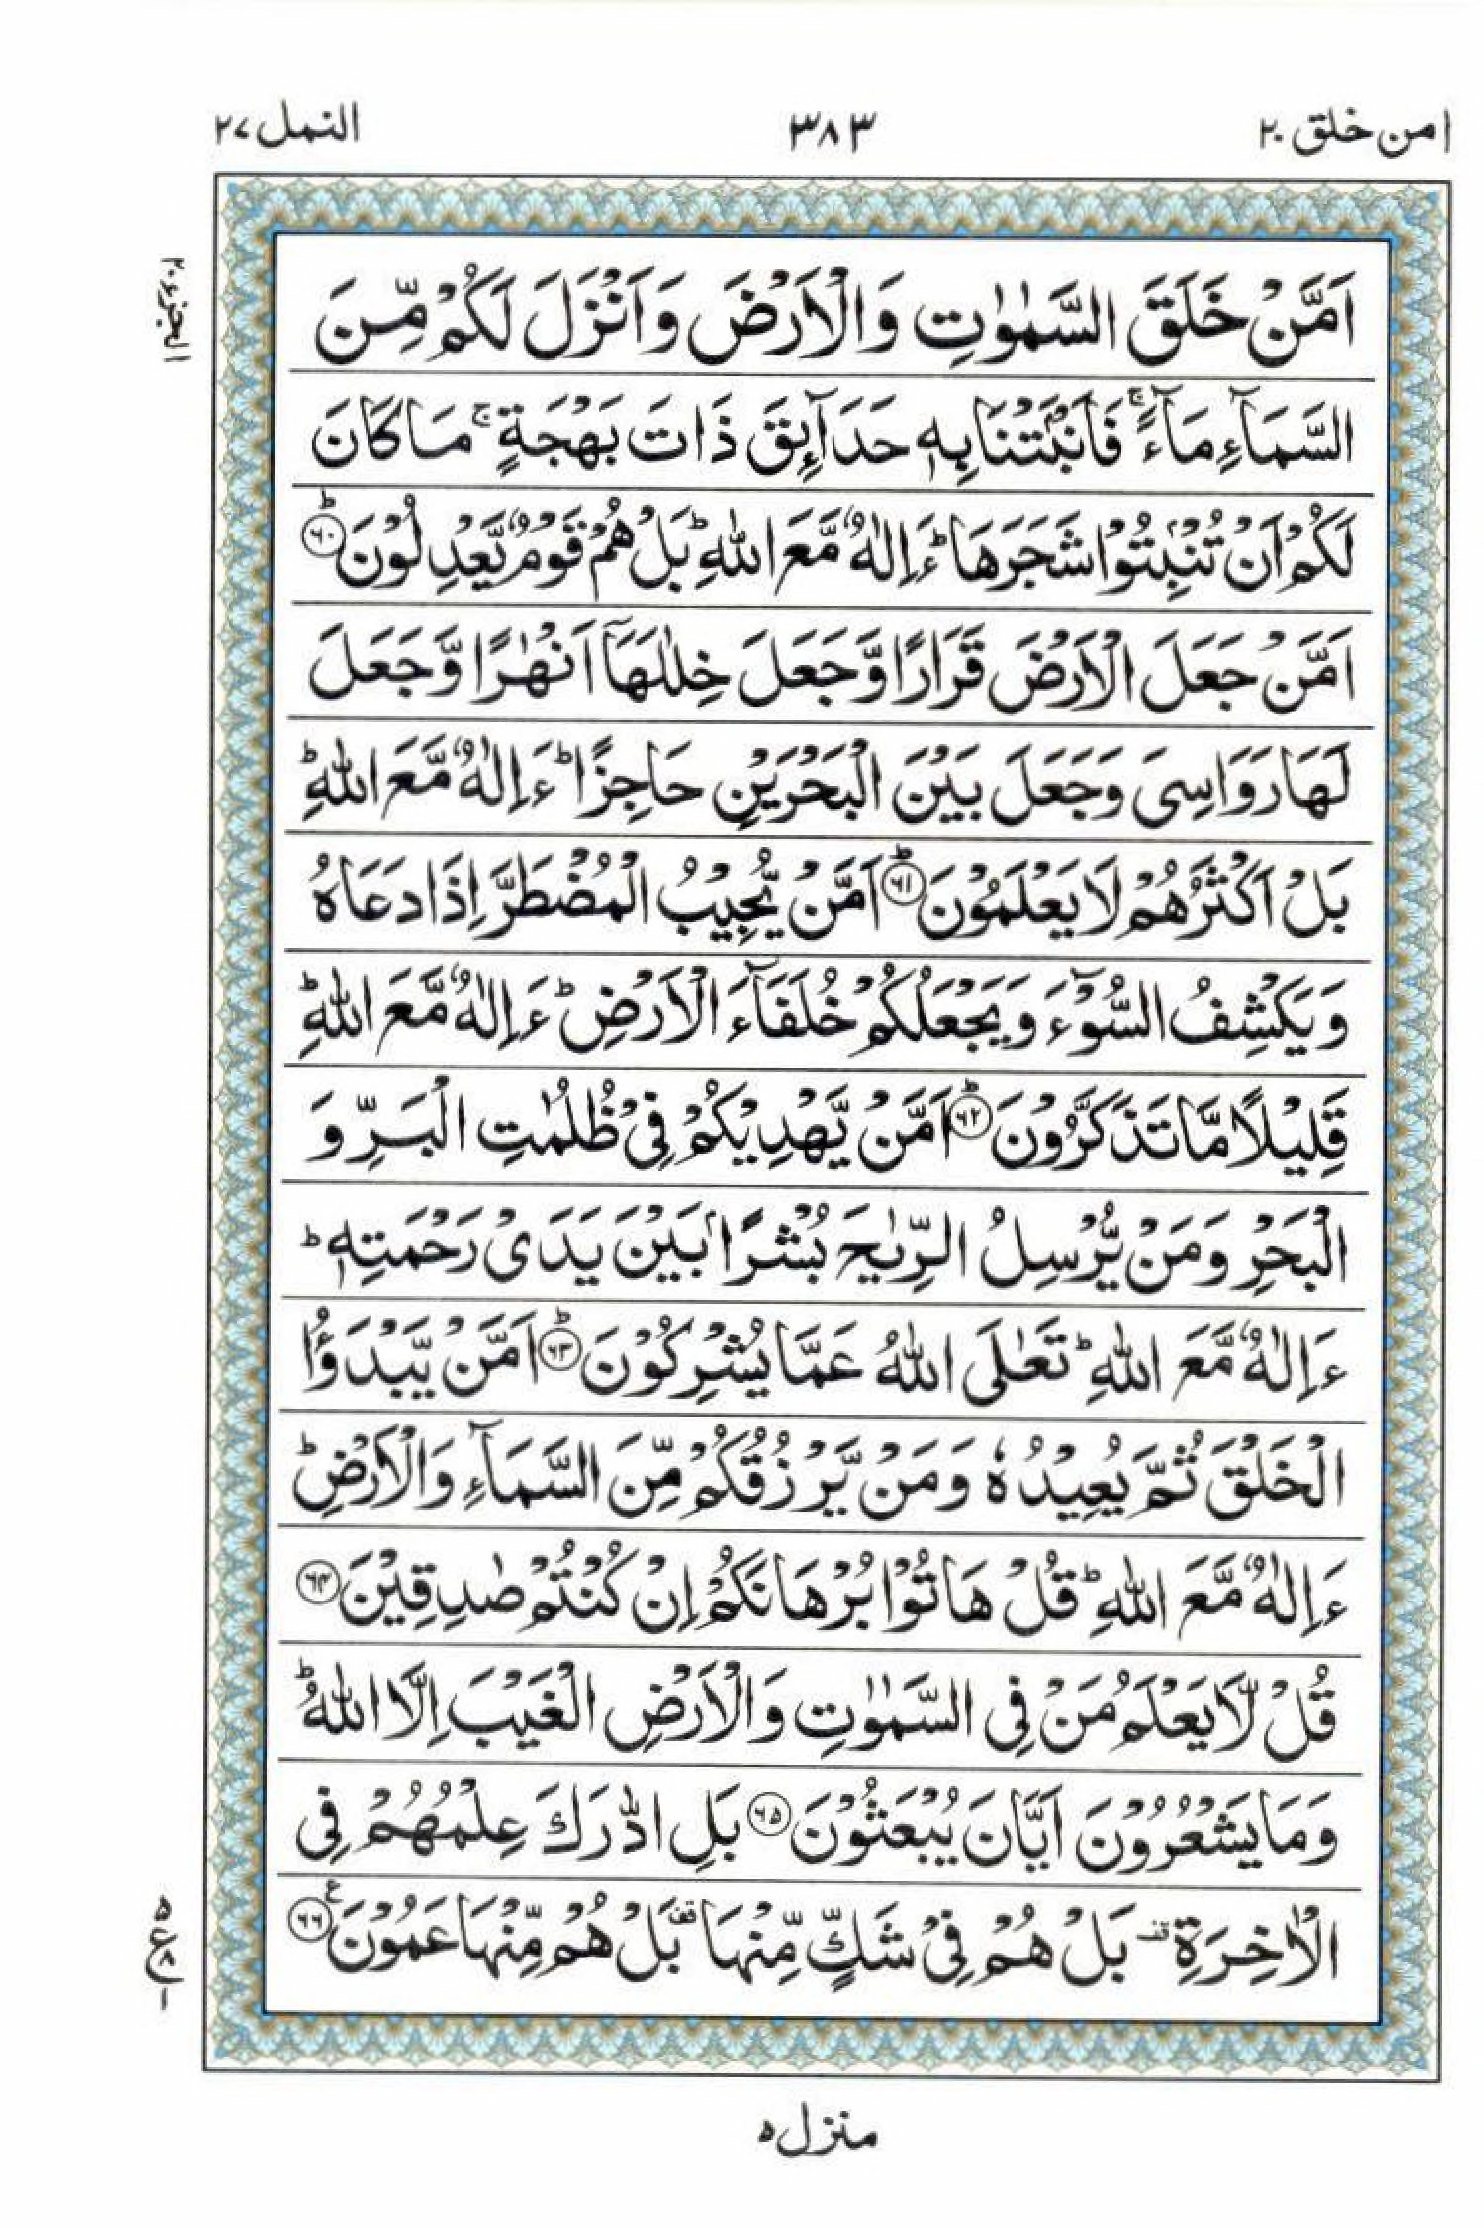 امن خلق ٢٠
٣٨٣
النمل ٢٧
الجزء ٢٠
اَمَّنْ خَلَقَ السَّمٰوٰتِ وَالْاَرْضَ وَاَنْزَلَ لَكُمْ مِّنَ
السَّمَآءِ مَآءً ۚ فَاَنْۢبَتْنَا بِهٖ حَدَآئِقَ ذَاتَ بَهْجَةٍ ۚ مَا كَانَ
لَكُمْ اَنْ تُنْۢبِتُوْا شَجَرَهَا ؕ ءَاِلٰهٌ مَّعَ اللّٰهِ ؕ بَلْ هُمْ قَوْمٌ يَّعْدِلُوْنَ ؕ ﴿۶۰﴾
اَمَّنْ جَعَلَ الْاَرْضَ قَرَارًا وَّجَعَلَ خِلٰلَهَآ اَنْهٰرًا وَّجَعَلَ
لَهَا رَوَاسِىَ وَجَعَلَ بَيْنَ الْبَحْرَيْنِ حَاجِزًا ؕ ءَاِلٰهٌ مَّعَ اللّٰهِ ؕ
بَلْ اَكْثَرُهُمْ لَا يَعْلَمُوْنَ ؕ ﴿۶۱﴾ اَمَّنْ يُّجِيْبُ الْمُضْطَرَّ اِذَا دَعَاهُ
وَيَكْشِفُ السُّوْٓءَ وَيَجْعَلُكُمْ خُلَفَآءَ الْاَرْضِ ؕ ءَاِلٰهٌ مَّعَ اللّٰهِ ؕ
قَلِيْلًا مَّا تَذَكَّرُوْنَ ؕ ﴿۶۲﴾ اَمَّنْ يَّهْدِيْكُمْ فِىْ ظُلُمٰتِ الْبَرِّ وَ
الْبَحْرِ وَمَنْ يُّرْسِلُ الرِّيٰحَ بُشْرًۢا بَيْنَ يَدَىْ رَحْمَتِهٖ ؕ
ءَاِلٰهٌ مَّعَ اللّٰهِ ؕ تَعٰلَى اللّٰهُ عَمَّا يُشْرِكُوْنَ ؕ ﴿۶۳﴾ اَمَّنْ يَّبْدَؤُا
الْخَلْقَ ثُمَّ يُعِيْدُهٗ وَمَنْ يَّرْزُقُكُمْ مِّنَ السَّمَآءِ وَالْاَرْضِ ؕ
ءَاِلٰهٌ مَّعَ اللّٰهِ ؕ قُلْ هَاتُوْا بُرْهَانَكُمْ اِنْ كُنْتُمْ صٰدِقِيْنَ ﴿۶۴﴾
قُلْ لَّا يَعْلَمُ مَنْ فِى السَّمٰوٰتِ وَالْاَرْضِ الْغَيْبَ اِلَّا اللّٰهُ ؕ
وَمَا يَشْعُرُوْنَ اَيَّانَ يُبْعَثُوْنَ ﴿۶۵﴾ بَلِ ادّٰرَكَ عِلْمُهُمْ فِى
الْاٰخِرَةِ قف بَلْ هُمْ فِىْ شَكٍّ مِّنْهَا قف بَلْ هُمْ مِّنْهَا عَمُوْنَ ع ﴿۶۶﴾
منزل ٥